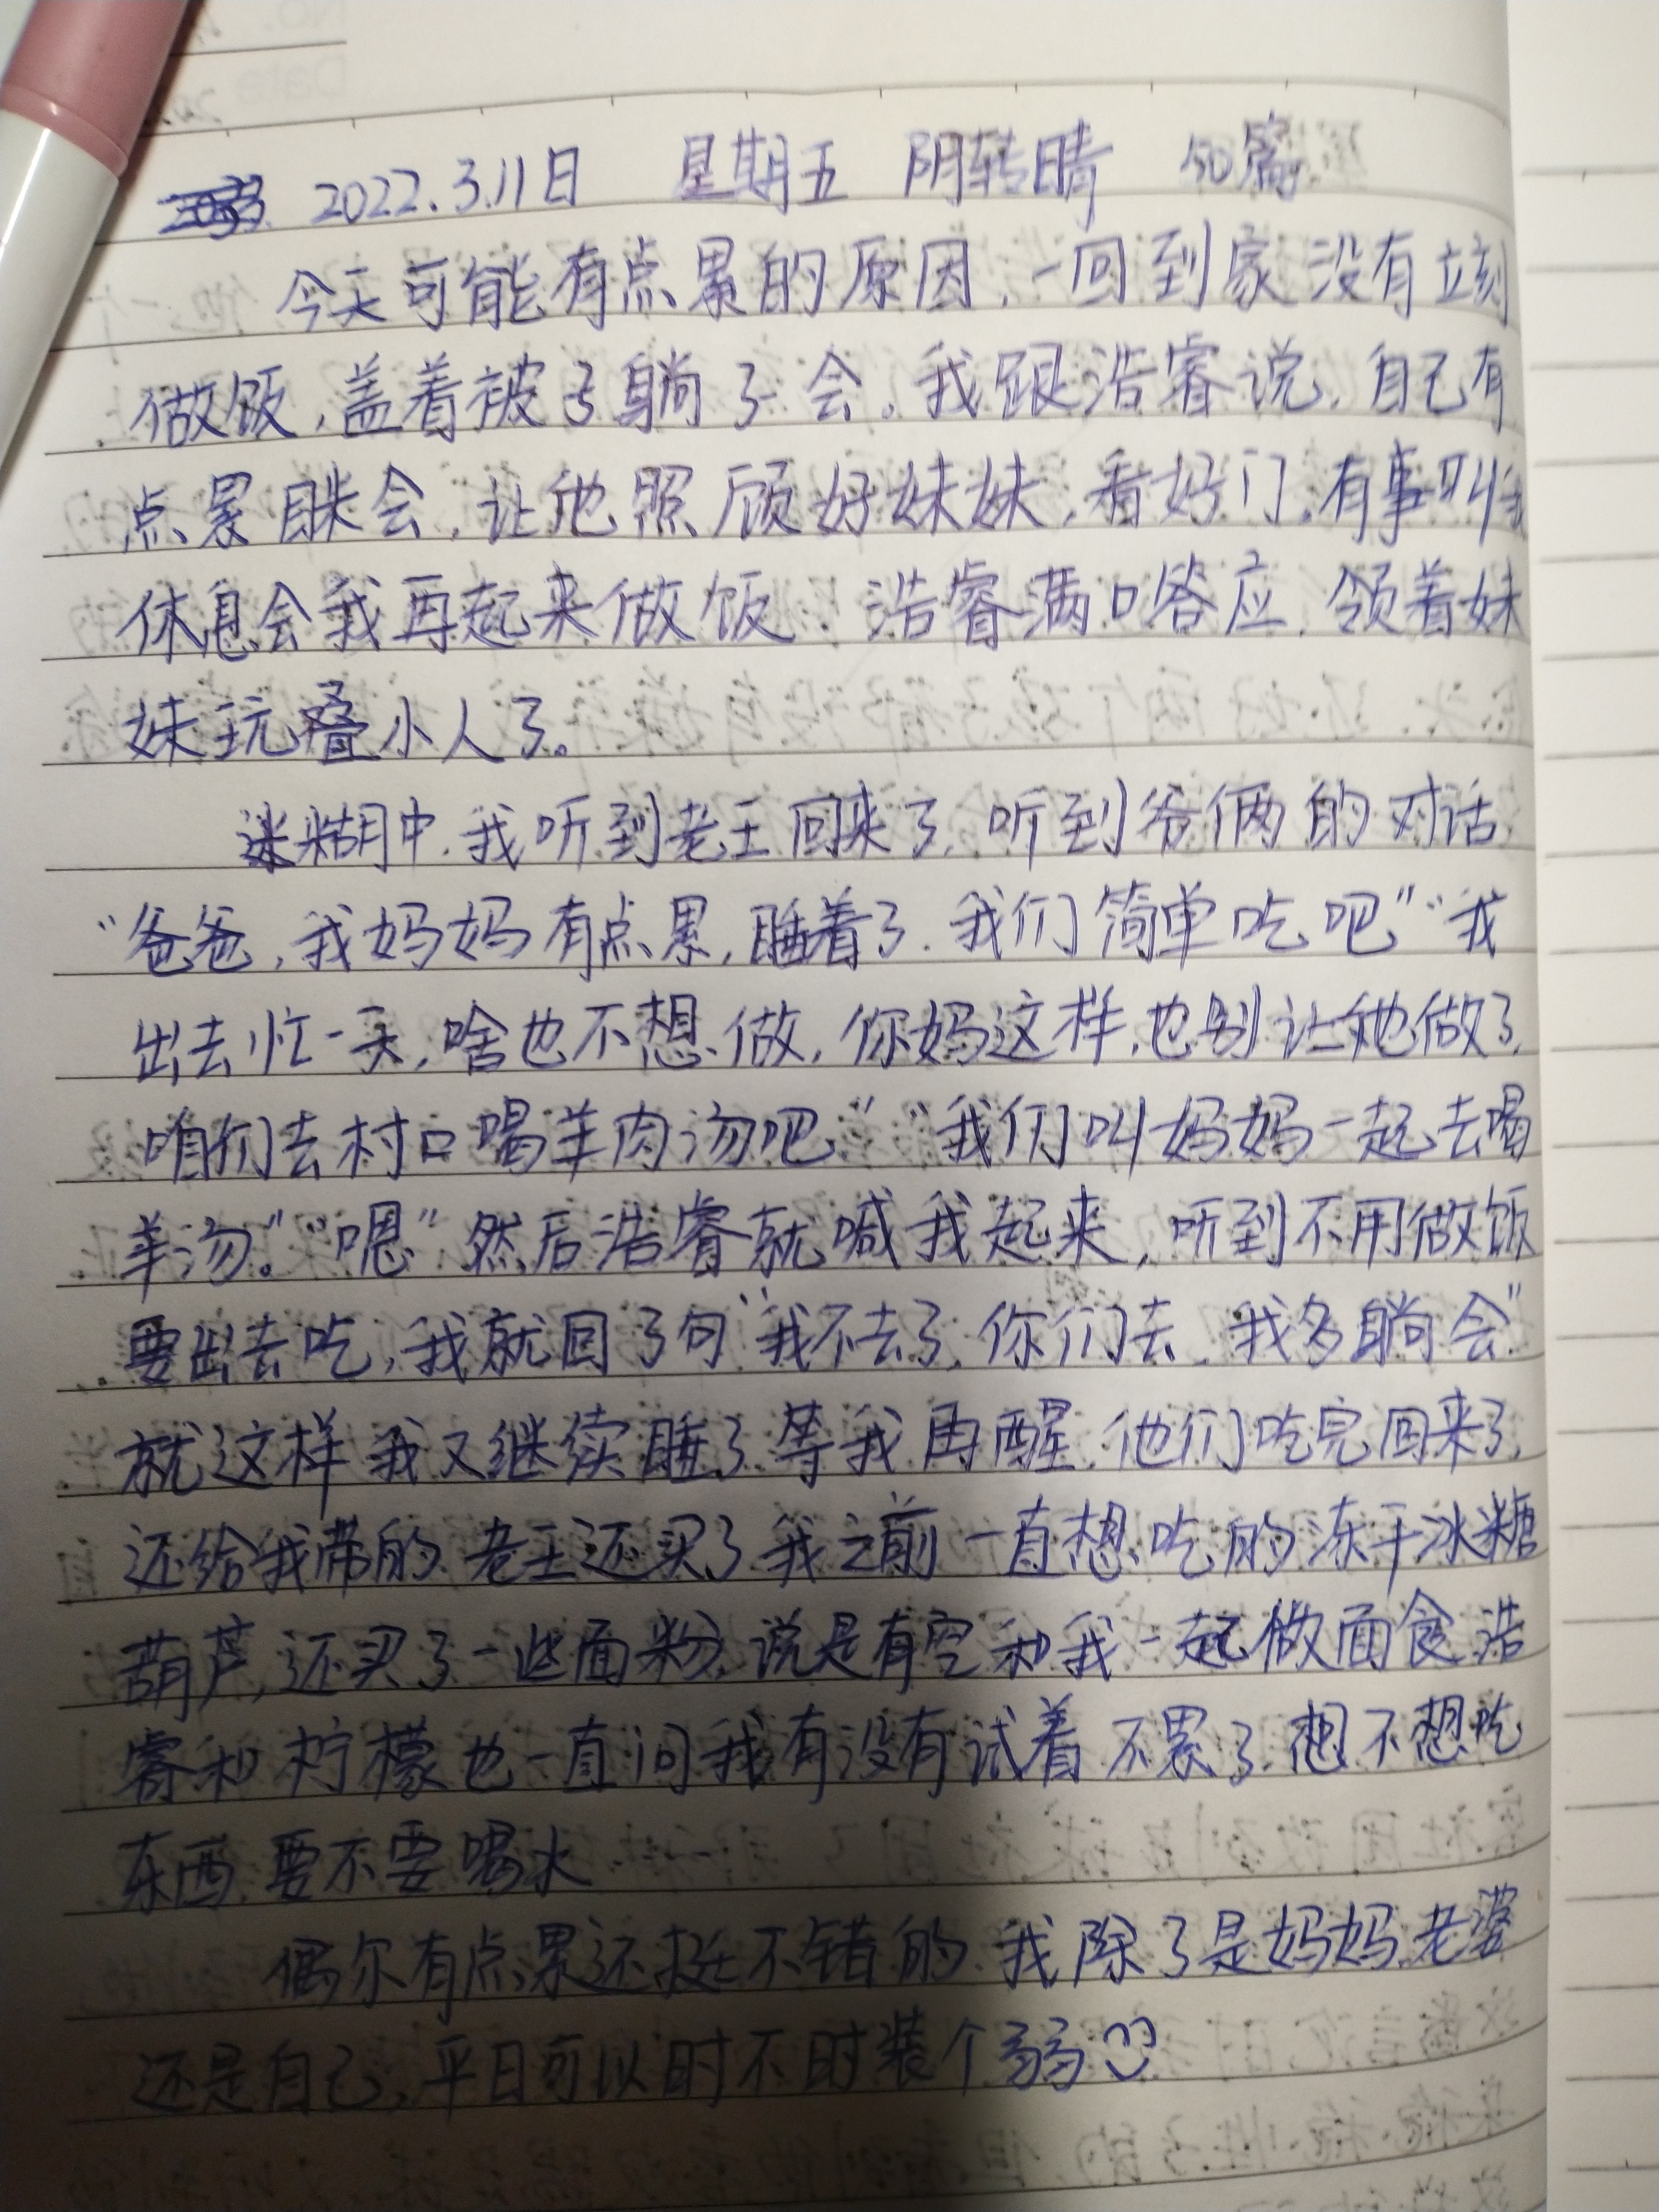 2022.3.11日 星期五 阴转晴 50篇
今天可能有点累的原因,一回到家没有立刻
做饭,盖着被子躺了会。我跟浩睿说,自己有
点累眯会,让他照顾好妹妹,看好门,有事叫我
休息会我再起来做饭.浩睿满口答应,领着妹
妹玩叠小人了。
迷糊中,我听到老王回来了,听到爷俩的对话
“爸爸,我妈妈有点累,睡着了.我们简单吃吧”“我
出去忙一天,啥也不想做,你妈这样,也别让她做了,
咱们去村口喝羊肉汤吧”“我们叫妈妈一起去喝
羊汤。”“嗯”然后浩睿就喊我起来,听到不用做饭
要出去吃,我就回了句“我不去了,你们去,我多躺会”
就这样我又继续睡了.等我再醒,他们吃完回来了,
还给我带的.老王还买了我之前一直想吃的冻干冰糖
葫芦,还买了一些面粉,说是有空和我一起做面食.浩
睿和柠檬也一直问我有没有试着不累了.想不想吃
东西,要不要喝水
偶尔有点累还挺不错的.我除了是妈妈.老婆
还是自己,平日可以时不时装个弱